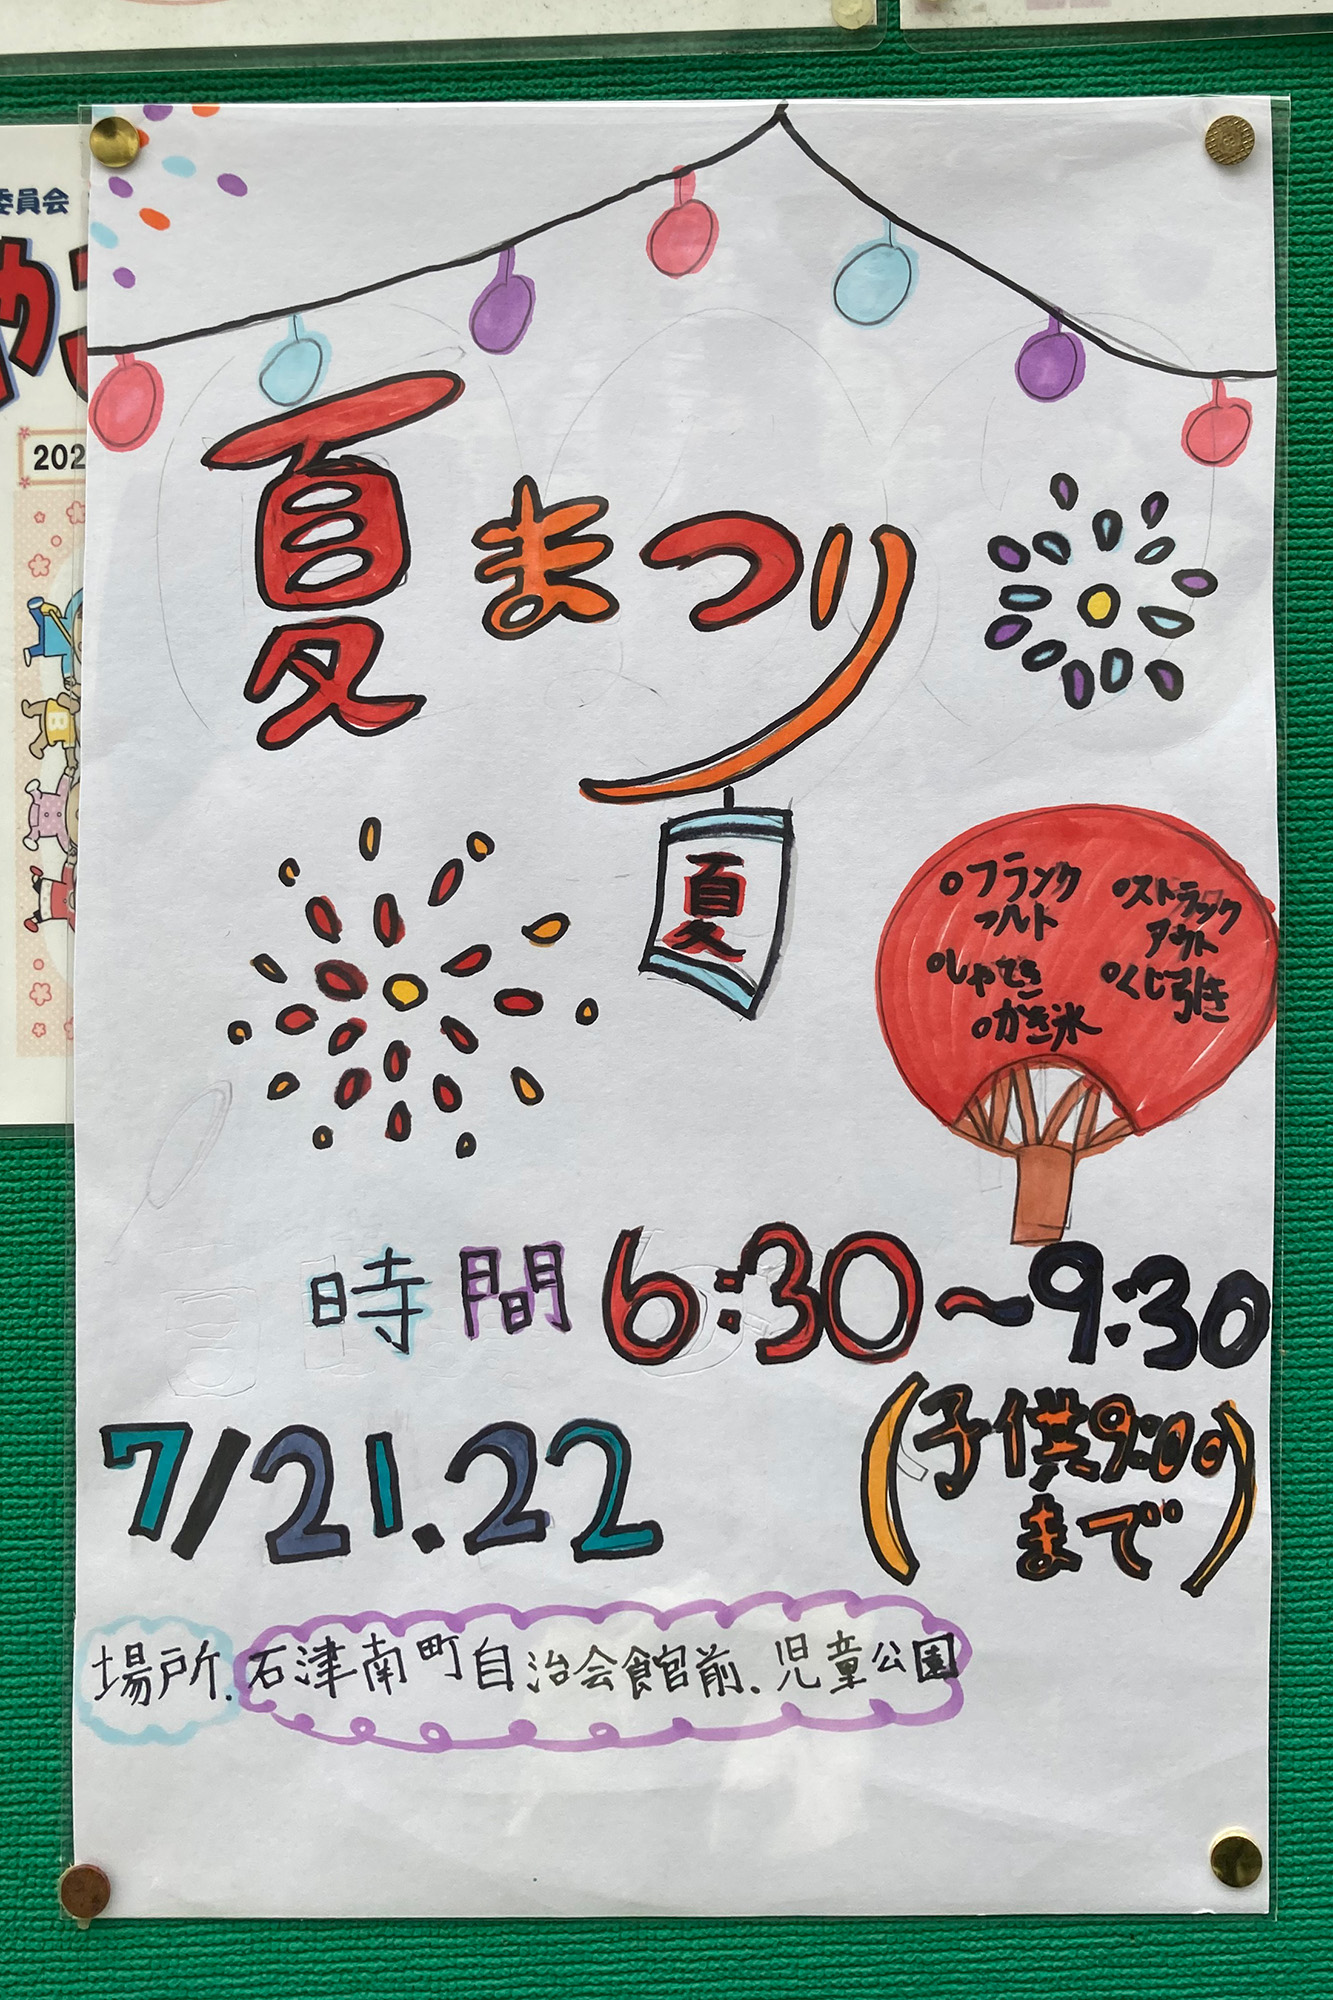 委員会
202
夏まつり
夏
○フランク
フルト
○ストラック
アウト
○しゃてき
○くじ引き
○かき氷
時間 6:30～9:30
7/21.22
(子供9:00
まで)
場所. 石津南町自治会館前.児童公園